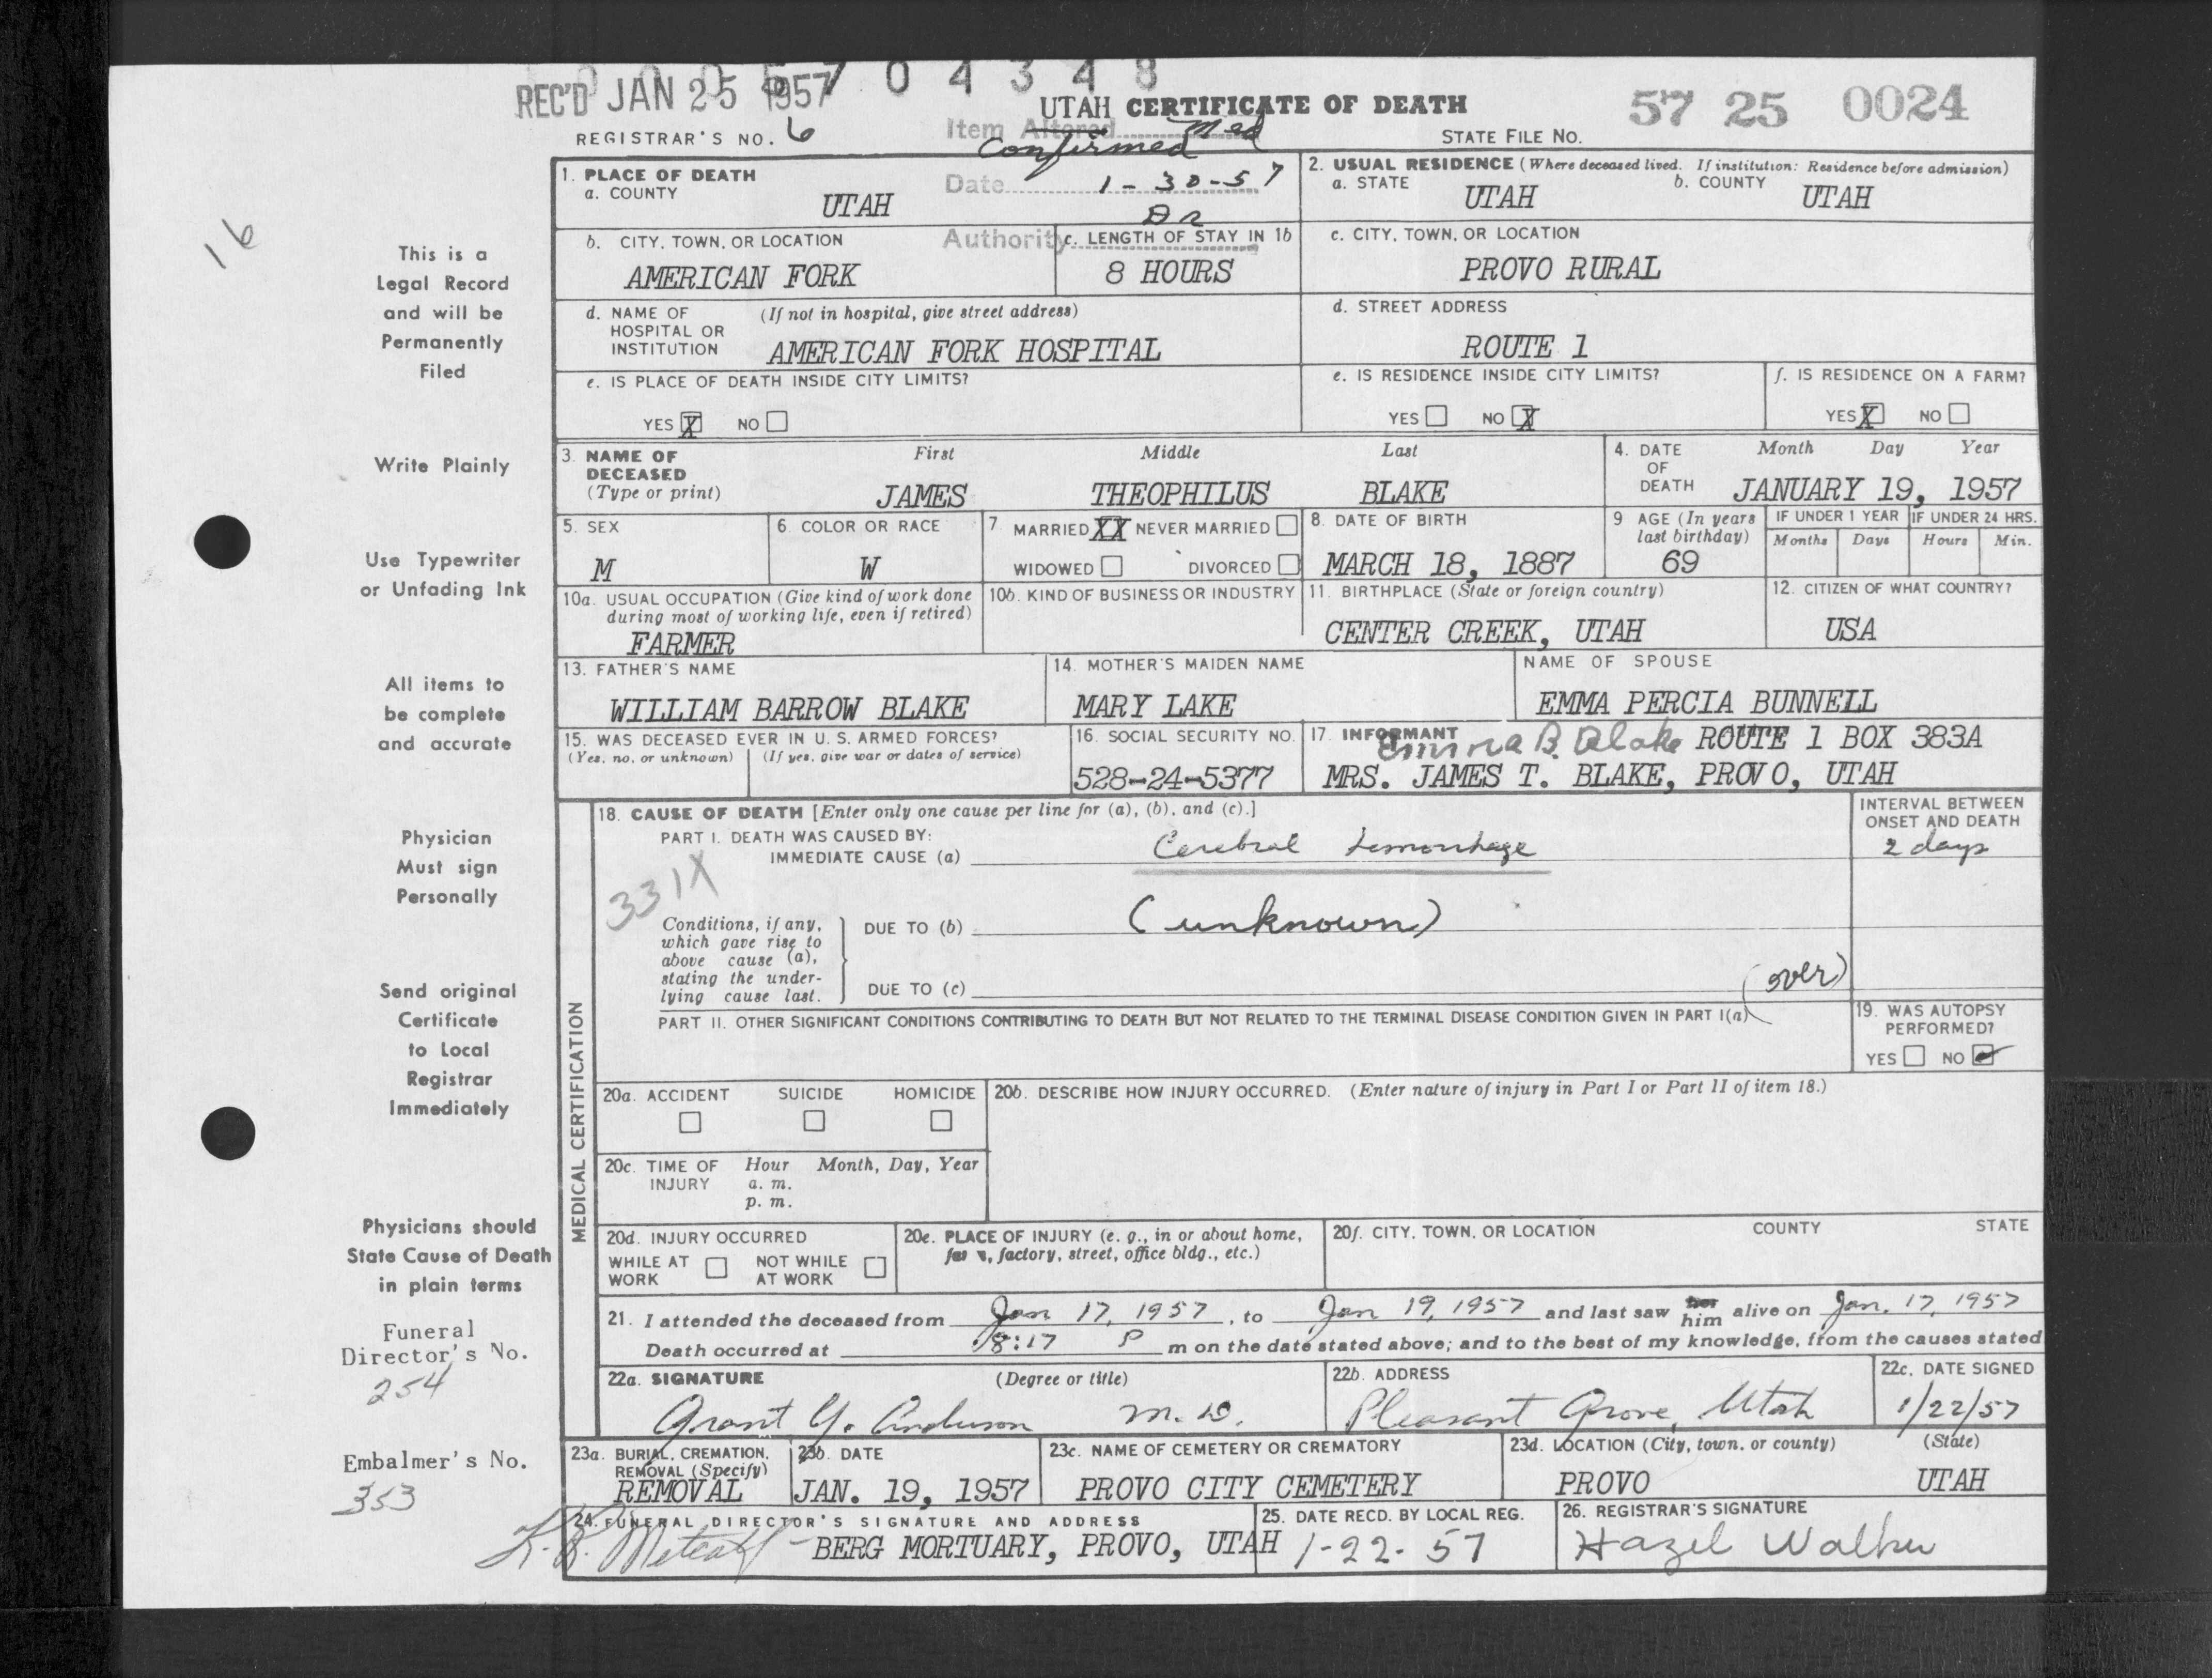 REC'D JAN 25 1957
0 4 3 4 8
UTAH CERTIFICATE OF DEATH
57 25 0024
REGISTRAR'S NO. 6
Item Altered Med
Confirmed
STATE FILE NO.
Date 1-30-57
Authority
16
This is a
Legal Record
and will be
Permanently
Filed
Write Plainly
Use Typewriter
or Unfading Ink
All items to
be complete
and accurate
Physician
Must sign
Personally
Send original
Certificate
to Local
Registrar
Immediately
Physicians should
State Cause of Death
in plain terms
Funeral
Director's No.
254
Embalmer's No.
353
1. PLACE OF DEATH
a. COUNTY
UTAH
2. USUAL RESIDENCE (Where deceased lived. If institution: Residence before admission)
a. STATE
UTAH
b. COUNTY
UTAH
b. CITY, TOWN, OR LOCATION
AMERICAN FORK
c. LENGTH OF STAY IN 1b
8 HOURS
c. CITY, TOWN, OR LOCATION
PROVO RURAL
d. NAME OF (If not in hospital, give street address)
HOSPITAL OR
INSTITUTION AMERICAN FORK HOSPITAL
d. STREET ADDRESS
ROUTE 1
e. IS PLACE OF DEATH INSIDE CITY LIMITS?
YES X NO
e. IS RESIDENCE INSIDE CITY LIMITS?
YES NO X
f. IS RESIDENCE ON A FARM?
YES X NO
3. NAME OF First Middle Last
DECEASED
(Type or print) JAMES THEOPHILUS BLAKE
4. DATE Month Day Year
OF
DEATH JANUARY 19, 1957
5. SEX
M
6 COLOR OR RACE
W
7. MARRIED XX NEVER MARRIED
WIDOWED DIVORCED
8. DATE OF BIRTH
MARCH 18, 1887
9 AGE (In years
last birthday)
69
IF UNDER 1 YEAR IF UNDER 24 HRS.
Months Days Hours Min.
10a. USUAL OCCUPATION (Give kind of work done
during most of working life, even if retired)
FARMER
10b. KIND OF BUSINESS OR INDUSTRY
11. BIRTHPLACE (State or foreign country)
CENTER CREEK, UTAH
12. CITIZEN OF WHAT COUNTRY?
USA
13. FATHER'S NAME
WILLIAM BARROW BLAKE
14. MOTHER'S MAIDEN NAME
MARY LAKE
NAME OF SPOUSE
EMMA PERCIA BUNNELL
15. WAS DECEASED EVER IN U. S. ARMED FORCES?
(Yes, no, or unknown) (If yes, give war or dates of service)
16. SOCIAL SECURITY NO.
528-24-5377
17. INFORMANT
Emma B. Blake ROUTE 1 BOX 383A
MRS. JAMES T. BLAKE, PROVO, UTAH
MEDICAL CERTIFICATION
18. CAUSE OF DEATH [Enter only one cause per line for (a), (b), and (c).]
PART I. DEATH WAS CAUSED BY:
IMMEDIATE CAUSE (a) Cerebral hemorrhage
INTERVAL BETWEEN
ONSET AND DEATH
2 days
331X
Conditions, if any,
which gave rise to
above cause (a),
stating the under-
lying cause last.
DUE TO (b) (unknown)
DUE TO (c)
(over)
PART II. OTHER SIGNIFICANT CONDITIONS CONTRIBUTING TO DEATH BUT NOT RELATED TO THE TERMINAL DISEASE CONDITION GIVEN IN PART I(a)
19. WAS AUTOPSY
PERFORMED?
YES NO
20a. ACCIDENT SUICIDE HOMICIDE
20b. DESCRIBE HOW INJURY OCCURRED. (Enter nature of injury in Part I or Part II of item 18.)
20c. TIME OF Hour Month, Day, Year
INJURY a. m.
p. m.
20d. INJURY OCCURRED
WHILE AT NOT WHILE
WORK AT WORK
20e. PLACE OF INJURY (e. g., in or about home,
factory, street, office bldg., etc.)
20f. CITY, TOWN, OR LOCATION COUNTY STATE
21. I attended the deceased from Jan 17, 1957, to Jan 19, 1957 and last saw her him alive on Jan. 17, 1957
Death occurred at 8:17 P m on the date stated above; and to the best of my knowledge, from the causes stated
22a. SIGNATURE (Degree or title)
Grant Y. Anderson M.D.
22b. ADDRESS
Pleasant Grove, Utah
22c. DATE SIGNED
1/22/57
23a. BURIAL, CREMATION,
REMOVAL (Specify)
REMOVAL
23b. DATE
JAN. 19, 1957
23c. NAME OF CEMETERY OR CREMATORY
PROVO CITY CEMETERY
23d. LOCATION (City, town, or county) (State)
PROVO UTAH
24. FUNERAL DIRECTOR'S SIGNATURE AND ADDRESS
Metcalf - BERG MORTUARY, PROVO, UTAH
25. DATE RECD. BY LOCAL REG.
1-22-57
26. REGISTRAR'S SIGNATURE
Hazel Walker